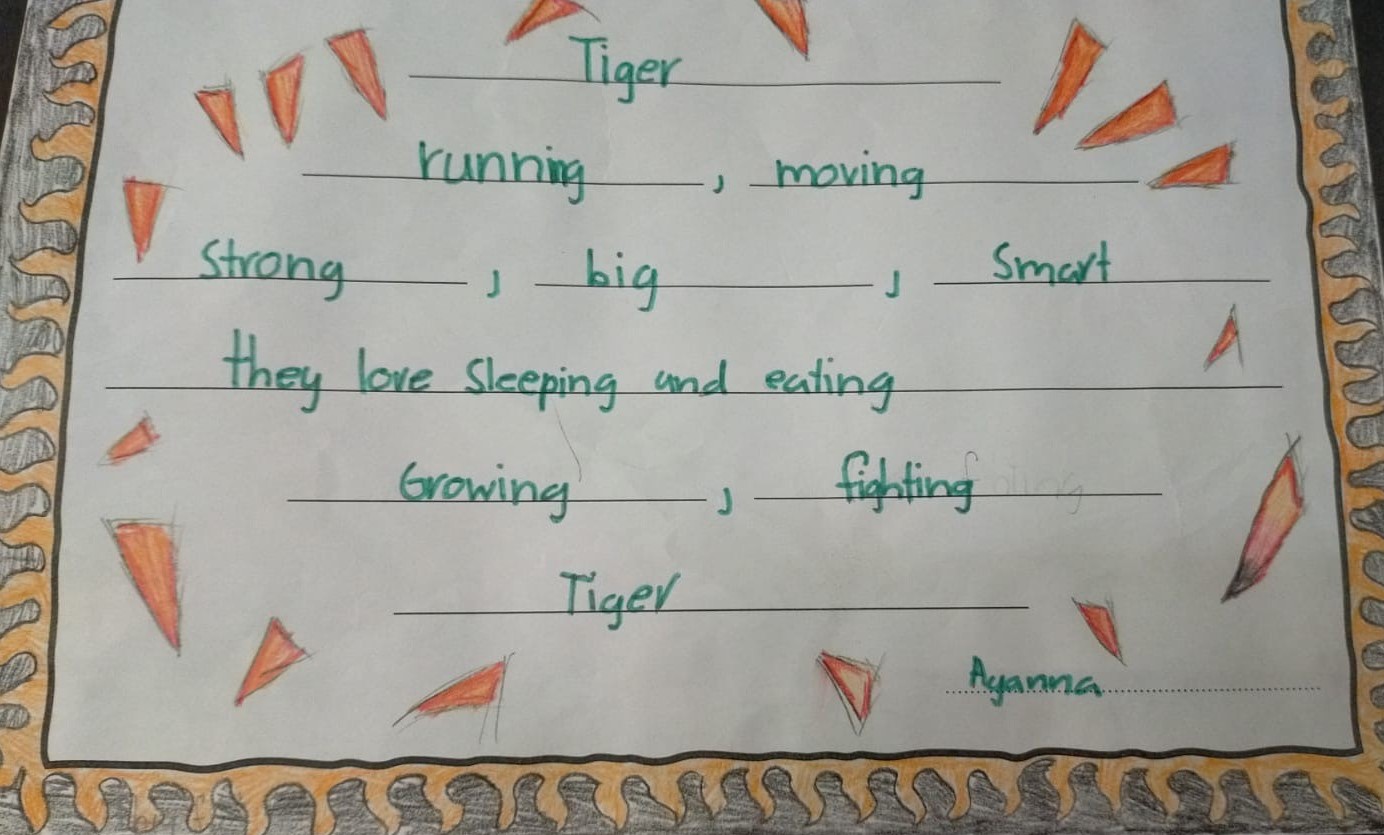 Tiger
running, moving
Strong, big, Smart
they love Sleeping and eating
Growing, fighting
Tiger
Ayanna